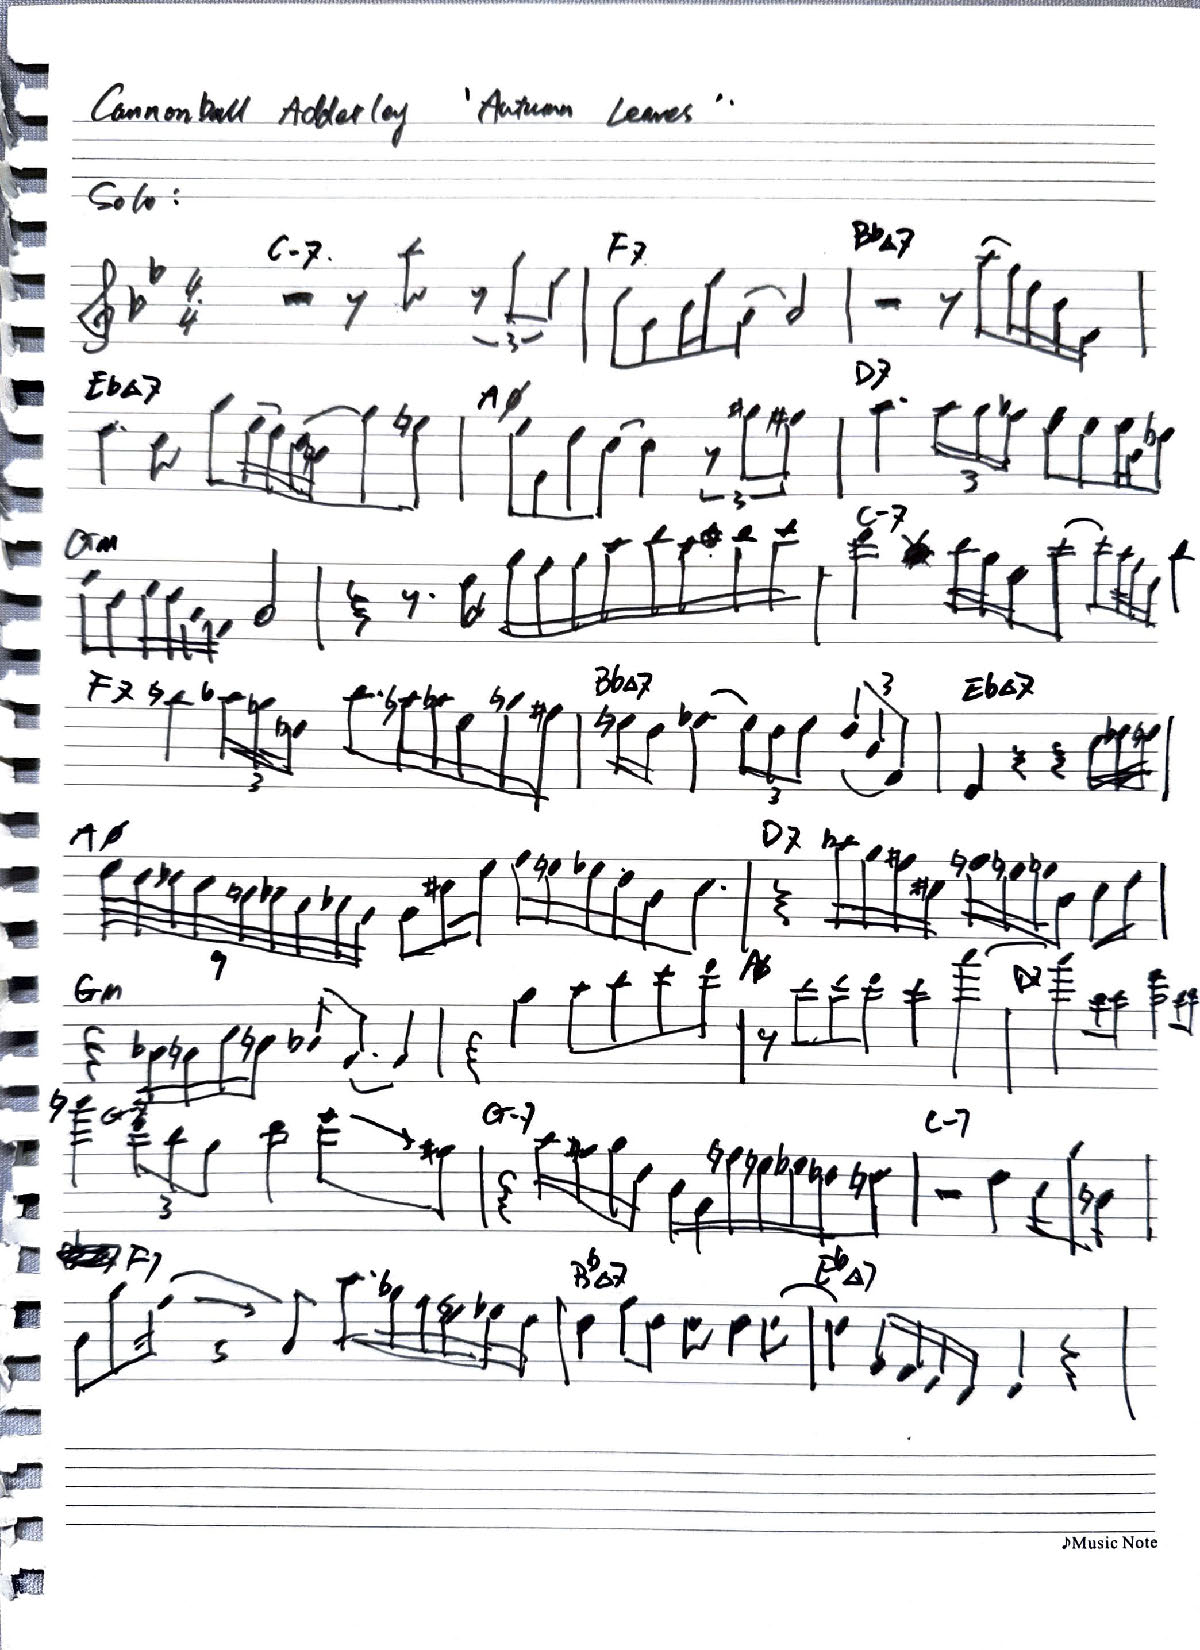 Cannonball Adderley 'Autumn Leaves"
Solo:
4
4
C-7. F7 Bb△7
3
Eb△7 Aø D7
3 3
Gm C-7
F7 Bb△7 3 Eb△7
3 3
Aø D7
9
Gm Aø D7
G-7 G-7 C-7
3
F7 Bb△7 Eb△7
♪Music Note